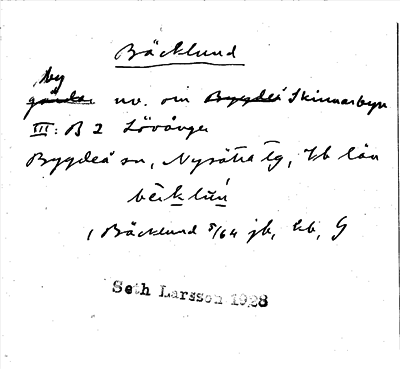 Bäcklund
by
gårds. nv. om Bygdeå Skinnarbyn
III: B 2 Lövånger
Bygdeå sn, Nysätra tg, Vb län
Bäcklund 5/64 jb, kb, G
Seth Larsson 1928